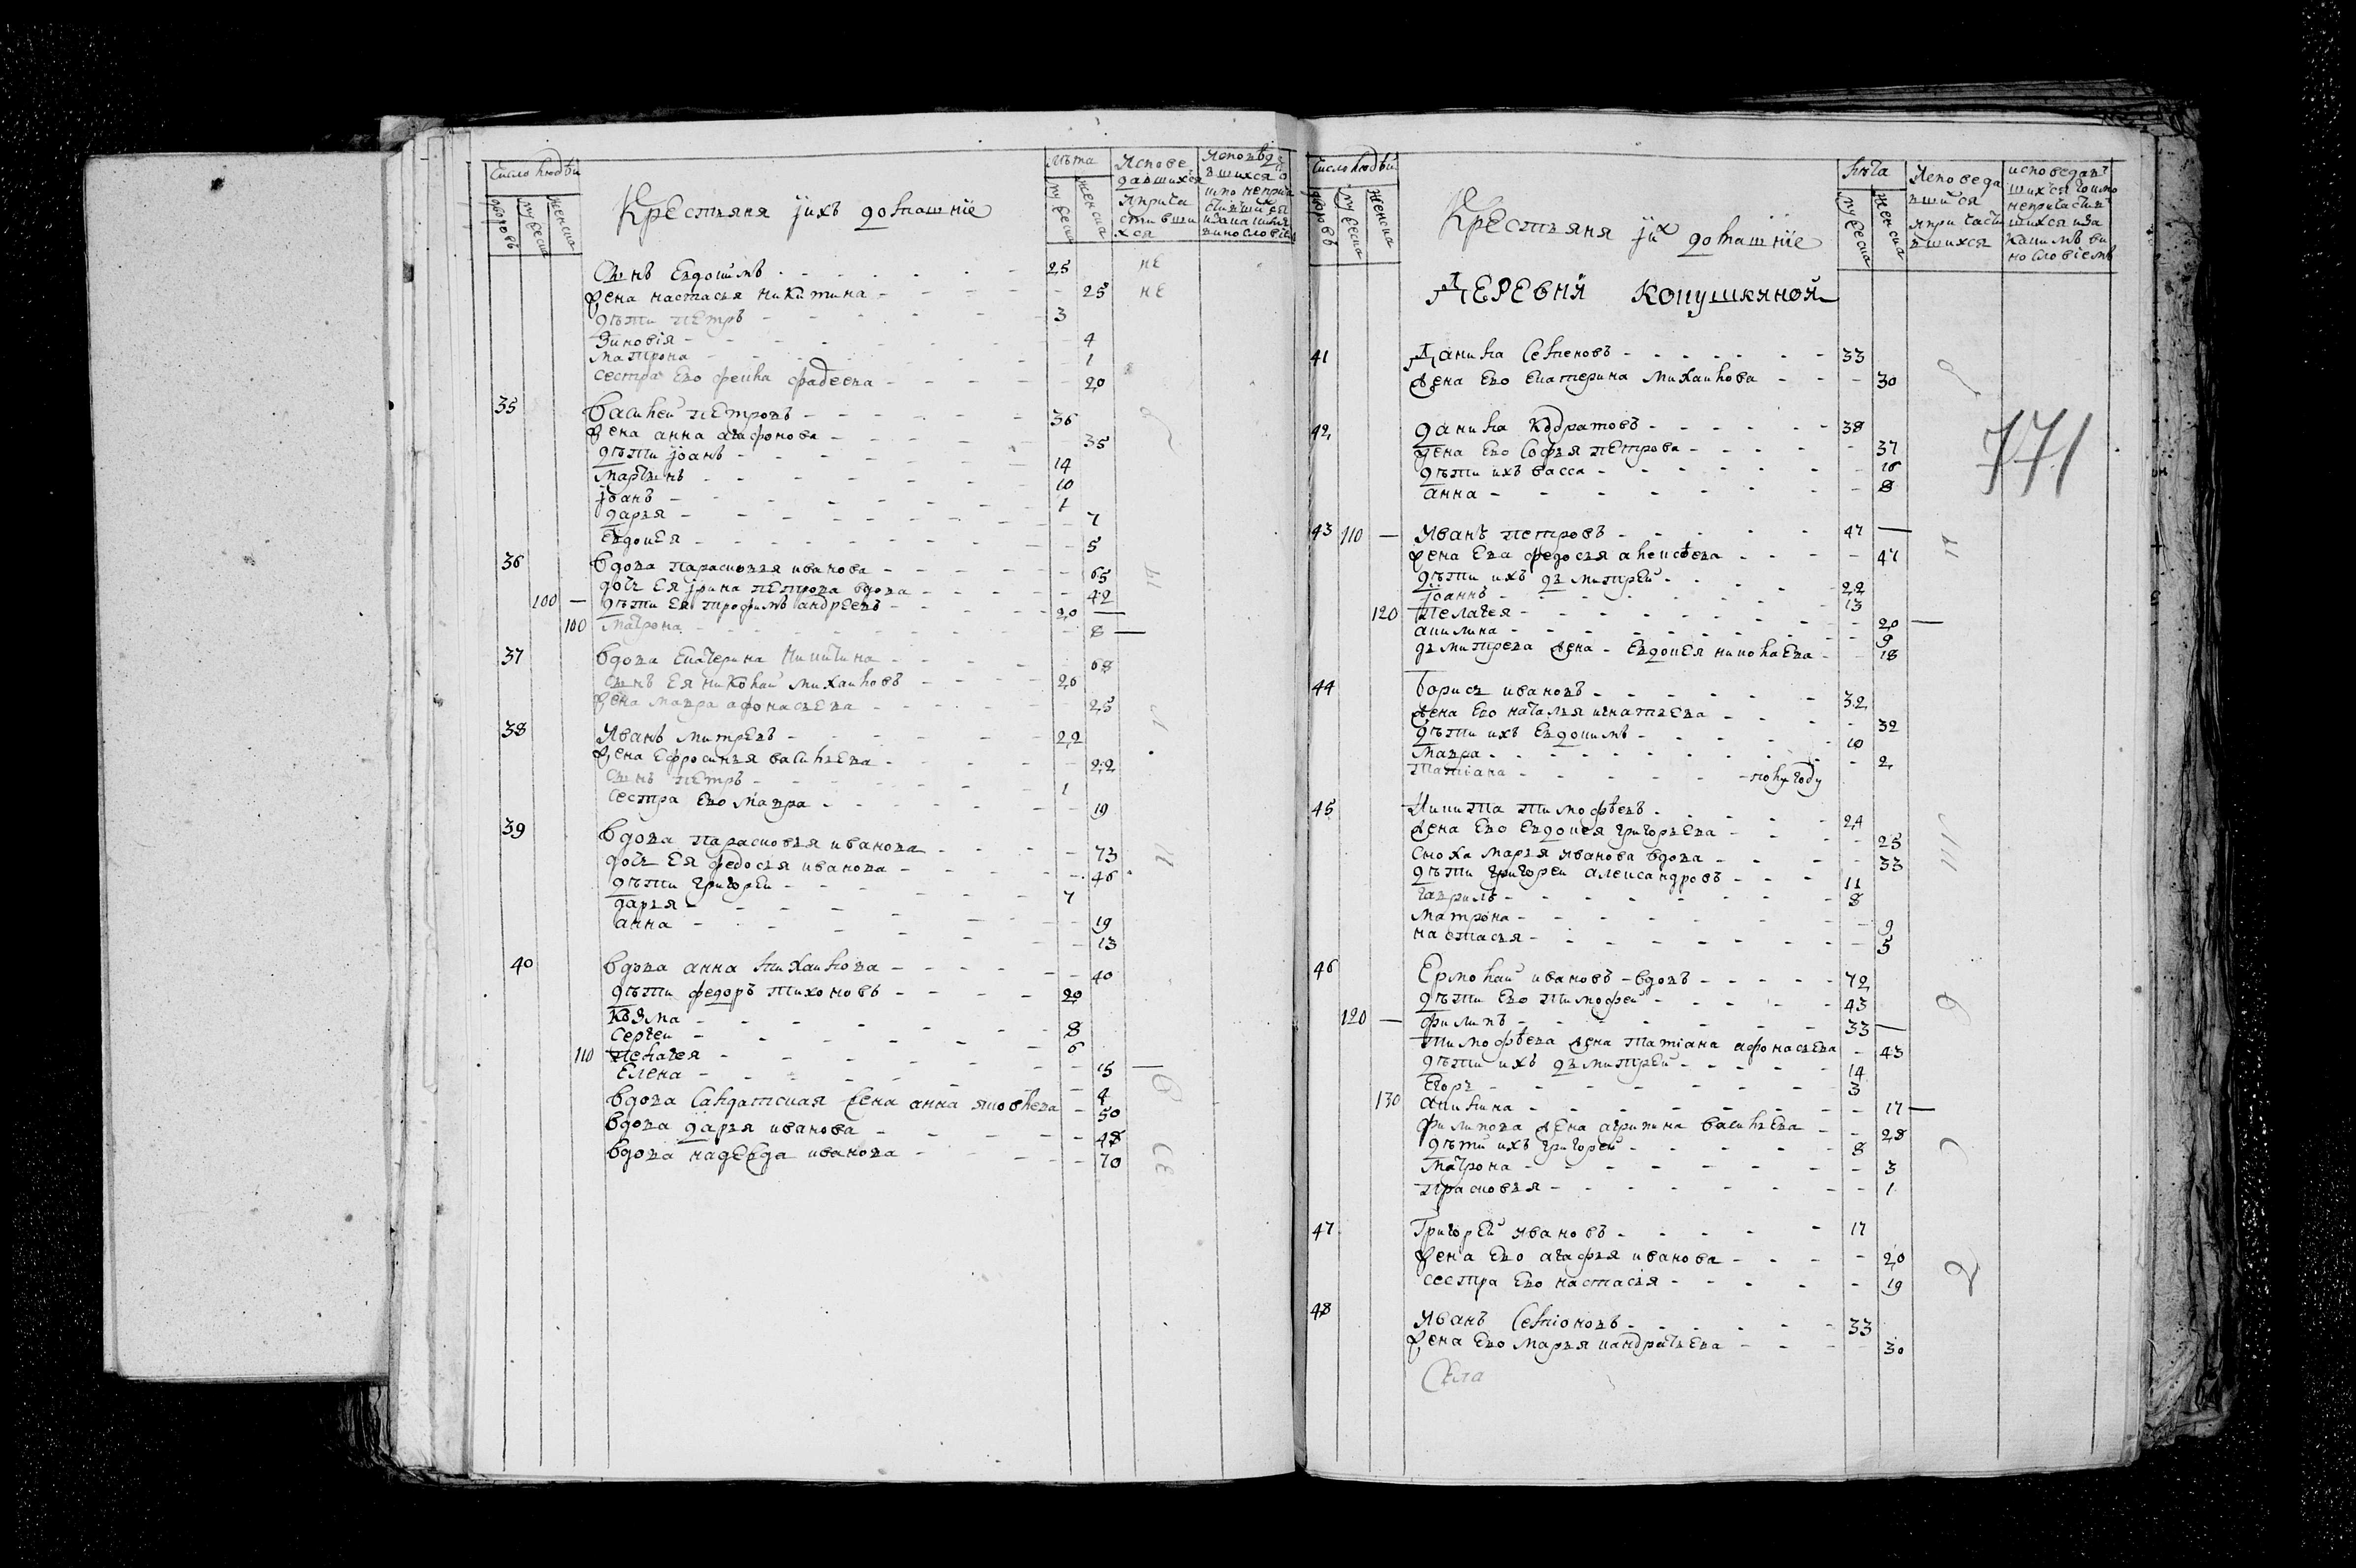 Число людѣй
дворовъ
мужеска
женска
Крестьяня јихъ домашніе
лѣта
мужеска
женска
Испове
давшихся
и прича
стивши
хся
Исповѣда
вшихся
но неприча
стившися
и за каким
винословіем
Сынъ Евдокимъ - 25 не
жена настасья никитина - 25 не
дѣти петръ - 3
Зиновія - 4
матрона - 1
сестра ево фекла фадеева - 20
35 василеи петровъ - 36
жена анна агафонова - 35
дѣти јоанъ - 14
мартинъ - 10
јоанъ - 1
дарья - 7
евдокея - 5
36 вдова парасковья иванова - 65
дочь ея јрина петрова вдова - 42
100 — дѣти ея трофимъ андреевъ - 20 —
100 матрона - 8 —
37 вдова екатерина никитина - 68
сынъ ея николаи михаиловъ - 26
жена мавра афонасьева - 25
38 Иванъ митревъ - 22
жена ефросинья васильева - 22
сынъ петръ - 1
сестра ево мавра - 19
39 вдова парасковья иванова - 73
дочь ея федосья иванова - 46
дѣти григореи - 7
дарья - 19
анна - 13
40 вдова анна михаилова - 40
дѣти федоръ тихоновъ - 20
Кузма - 8
Сергеи - 6
110 пелагея - 15 —
Елена - 4
вдова салдатская жена анна яковлева - 50
вдова дарья иванова - 48
вдова надежда иванова - 70
Число людѣй
дворовъ
мужеска
женска
Крестьяня јих домашніе
лѣта
мужеска
женска
Исповеда
вшися
и причасти
вшихся
исповедав
шихся но
непричастив
шихся и за
каким ви
нословіемъ
Деревни Копушкиной
771
41 Данила Семеновъ - 33
жена ево екатерина михаилова - 30
42 данила кодратовъ - 38
жена ево софья петрова - 37
дѣти ихъ васса - 16
анна - 8
43 110 — Иванъ петровъ - 47 —
жена ева федосья алексѣева - 47
дѣти ихъ дьмитреи - 22
јоаннъ - 13
120 пелагея - 20 —
акилина - 9
дьмитрева жена - евдокея николаева - 18
44 борисъ ивановъ - 32
жена ево наталья игнатьева - 32
дѣти ихъ евдокимъ - 10
мавра - 2
татіана - полугоду
45 Никита тимофѣевъ - 24
жена ево евдокея григорьева - 25
сноха марья иванова вдова - 33
дѣти григореи александровъ - 11
гаврилъ - 8
матрона - 9
настасья - 5
46 Ермолаи ивановъ - вдовъ - 72
дѣти ево тимофеи - 43
120 — филипъ - 33 —
тимофѣева жена татіана афонасьева - 43
дѣти ихъ дьмитреи - 14
егоръ - 3
130 акилина - 17 —
филипова жена агрипина васильева - 28
дѣти ихъ григореи - 8
матрона - 3
прасковья - 1
47 Григореи ивановъ - 17
жена ево агафья иванова - 20
сестра ево настасія - 19
48 Иванъ Семіоновъ - 33
жена ево марья кандратьева - 30
Села